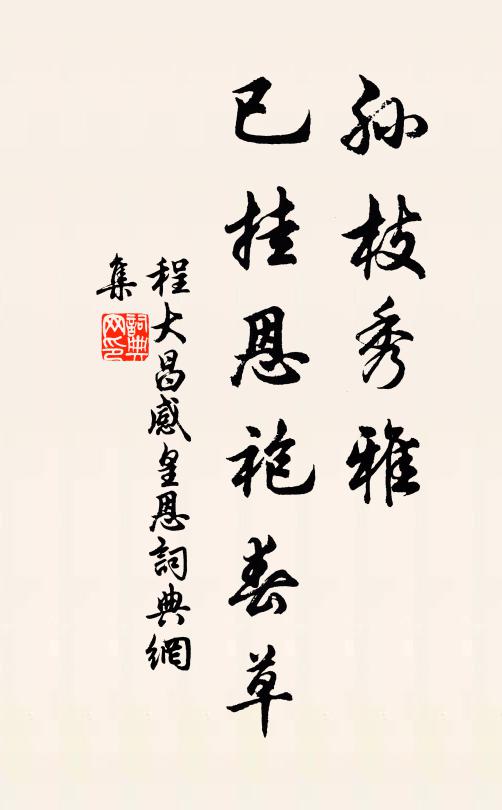 孙枝秀雅
已挂恩袍春草
程大昌感皇恩詞典網
集
詞典
网印